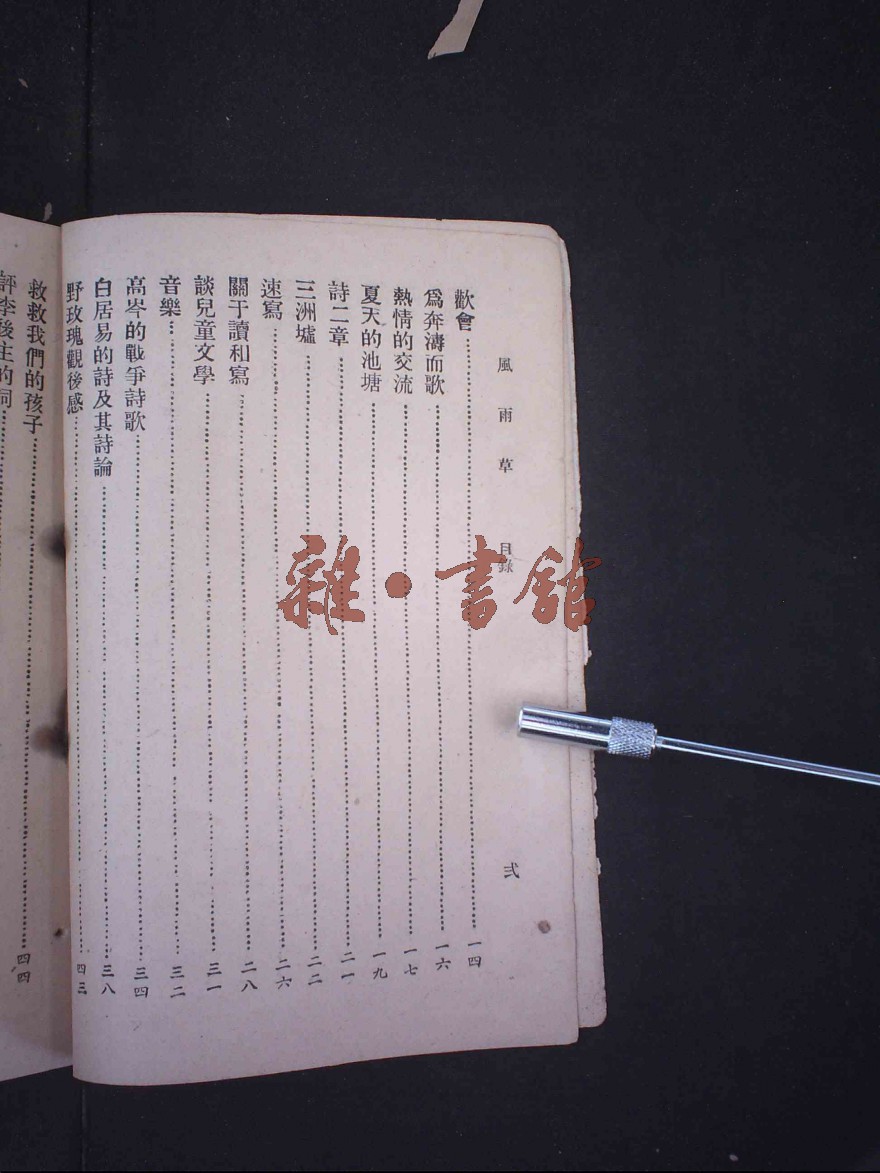 風雨草 目錄 弍
歡會 一四
爲奔濤而歌 一六
熱情的交流 一七
夏天的池塘 一九
詩二章 二一
三洲墟 二二
速寫 二六
關于讀和寫 二八
談兒童文學 三一
音樂 三二
高岑的戰爭詩歌 三四
白居易的詩及其詩論 三八
野玫瑰觀後感 四三
救救我們的孩子 四四
評李後主的詞
雜·書館